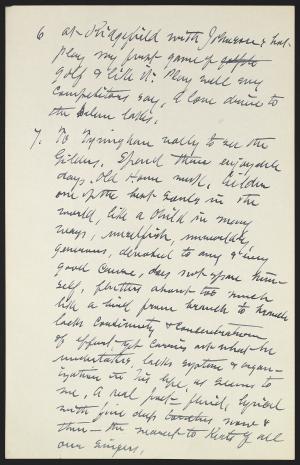 6 at Ridgefield with Johnson & has
play my first game of
golf & like it. May well my
competitors say, I come down to
the
7. To Tyringham valley to see the
Gilders. Spend three enjoyable
days. Old Home week. Gilder
one of the best souls in the
world, like a child in many
ways, unselfish, unworldly,
generous, devoted to any & every
good cause, does not spare him-
self, flutters about too much
like a bird from branch to branch
lacks continuity & concentration
of effort - yet carries out what he
undertakes, lacks system & organ-
ization in his life, it seems to
me. A real poet - fluid, lyrical
with fine days now &
then - the nearest to Keats of all
our singers.